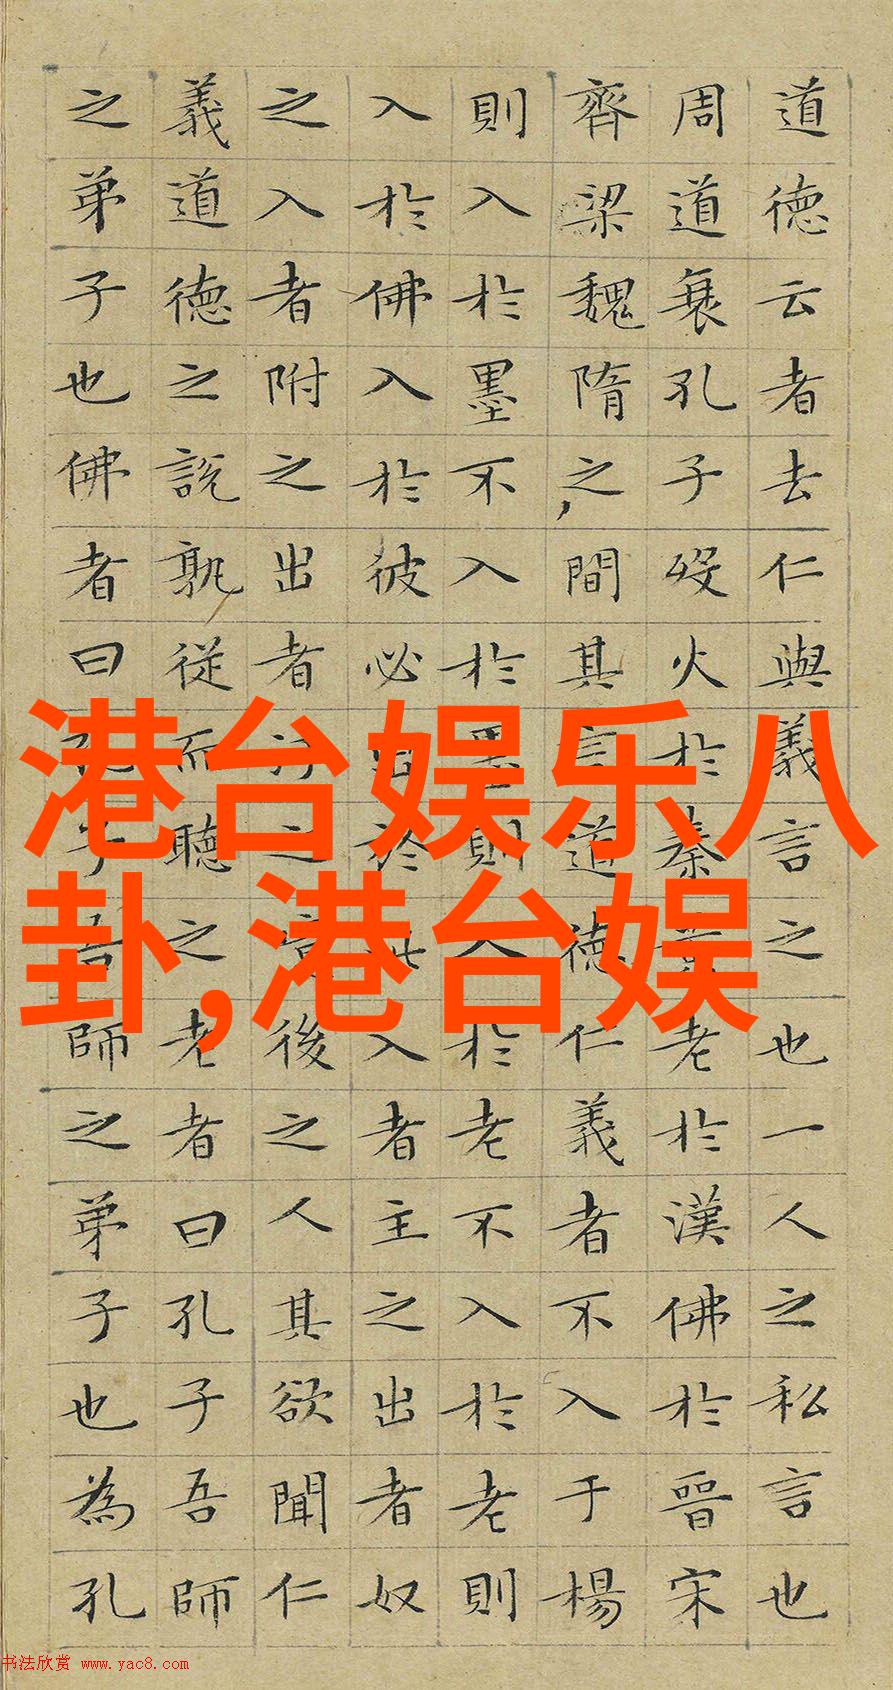 道德云者去仁與義言之也一人之私言也
周道衰孔子歿火於秦老於漢佛於晉宋
齊梁魏隋之間其言道德仁義者不入于楊
則入於墨不入於墨則入於老不入於老則
入於佛入於彼必出於此入者主之出者奴
之入者附之出者之後之人其欲聞仁
義道德之說孰從而聽之老者曰孔子吾師
之弟子也佛者曰孔子吾師之弟子也為孔
港台娱乐八
卦,港台娱
书法欣赏 www.yac8.com